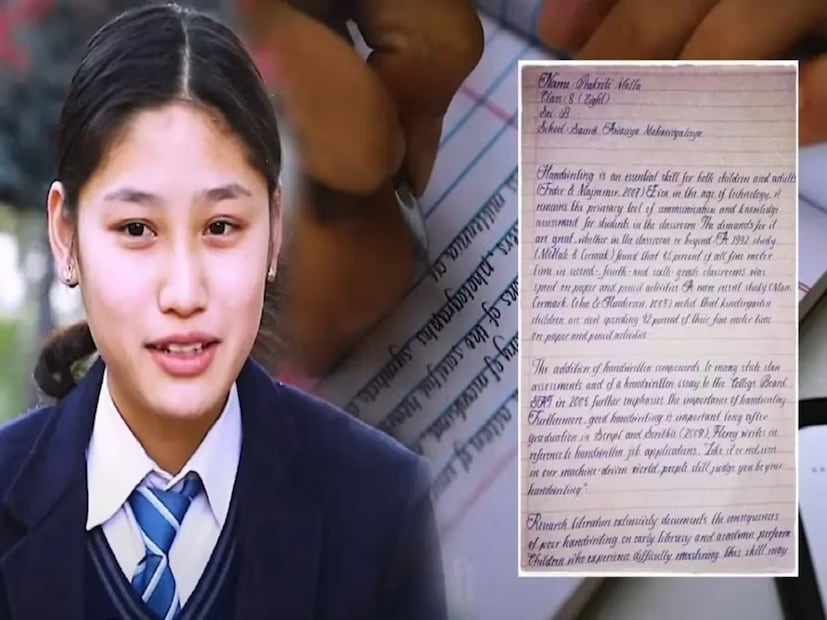 Name: Prakriti Malla
Class: 8 (Eight)
Sec: B
School: Sainik Awasiya Mahavidyalaya
Handwriting is an essential skill for both children and adults
(Feder & Majnemer, 2007) Even in the age of technology, it
remains the primary tool of communication and knowledge
assessment for students in the classroom. The demands for it
are great, whether in the classroom or beyond. A 1992 study
(McHale & Cermak) found that 85 percent of all fine motor
time in second-, fourth- and sixth- grade classrooms was
spent on paper and pencil activities. A more recent study (Marr,
Cermark, Cohn & Henderson, 2003) noted that kindergarten
children are now spending 42 percent of their fine motor time
on paper and pencil activities
The addition of handwritten components to many state
assessments and of a handwritten essay to the College Board
SAT in 2005 further emphasize the importance of handwriting
Furthermore, good handwriting is important long after
graduation in Script and Scribble (2009), Florey writes in
reference to handwritten job applications, "Like it or not, even
in our machine-driven world, people still judge you by your
handwriting".
Research literature extensively documents the consequences
of poor handwriting on early literacy and academic perform
Children who experience difficulty mastering this skill may
millennia of
photographs, symbols
of the
of mankind